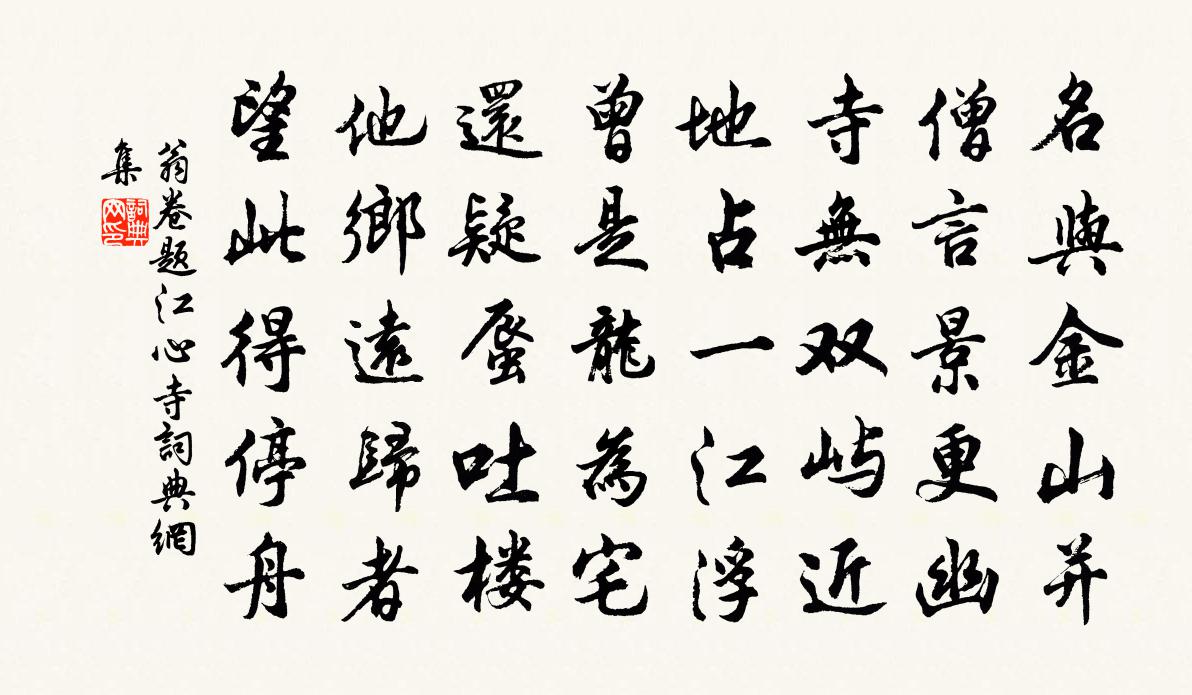 名與金山并
僧言景更幽
寺無双屿近
地占一江浮
曾是龍為宅
還疑蜃吐楼
他鄉遠歸者
望此得停舟
翁卷题江心寺詞典網
集
詞典
网印